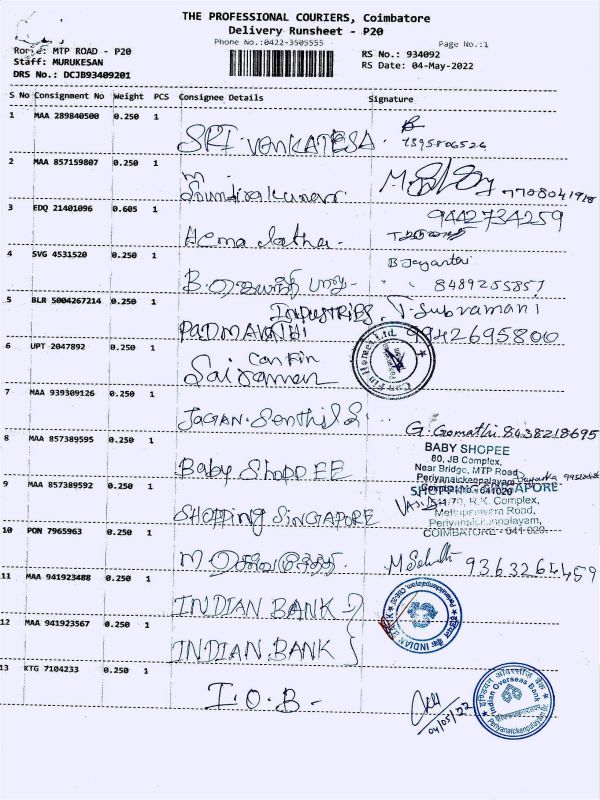 THE PROFESSIONAL COURIERS, Coimbatore
Delivery Runsheet - P20
Phone No.:0422-3505555
Page No.:1
Route: MTP ROAD - P20
RS No.: 934092
Staff: MURUKESAN
RS Date: 04-May-2022
DRS No.: DCJB93409201
S No Consignment No Weight PCS Consignee Details Signature
1 MAA 289840500 0.250 1 SRI VENKATESA 7395806526
2 MAA 857159807 0.250 1 M 7708041918
3 EDQ 21401096 0.605 1 Hema latha 9442734259
4 SVG 4531520 0.250 1 B. ஜெயந்தி பாபு B Jeyanthi 8489255857
5 BLR 5004267214 0.250 1 PADMAVATHI INDUSTRIES T. Subramani 9942695800
6 UPT 2047892 0.250 1 Sairaman Can Fin
Can Fin Homes Ltd.
7 MAA 939309126 0.250 1 JAGAN. Senthil G. Gomathi 8438218695
8 MAA 857389595 0.250 1 Baby ShoppEE
BABY SHOPEE
80, JB Complex,
Near Bridge, MTP Road
Periyanaickenpalayam
Coimbatore - 641020
9 MAA 857389592 0.250 1 SHOPPING SINGAPORE
SHOPPING SINGAPORE
R.K. Complex,
Mettupalayam Road,
Periyanaickenpalayam,
COIMBATORE - 641 020.
10 PON 7965963 0.250 1 M 9363264459
11 MAA 941923488 0.250 1 INDIAN BANK
12 MAA 941923567 0.250 1 INDIAN BANK
INDIAN BANK
13 KTG 7104233 0.250 1 I.O.B -
04/05/22
Indian Overseas Bank